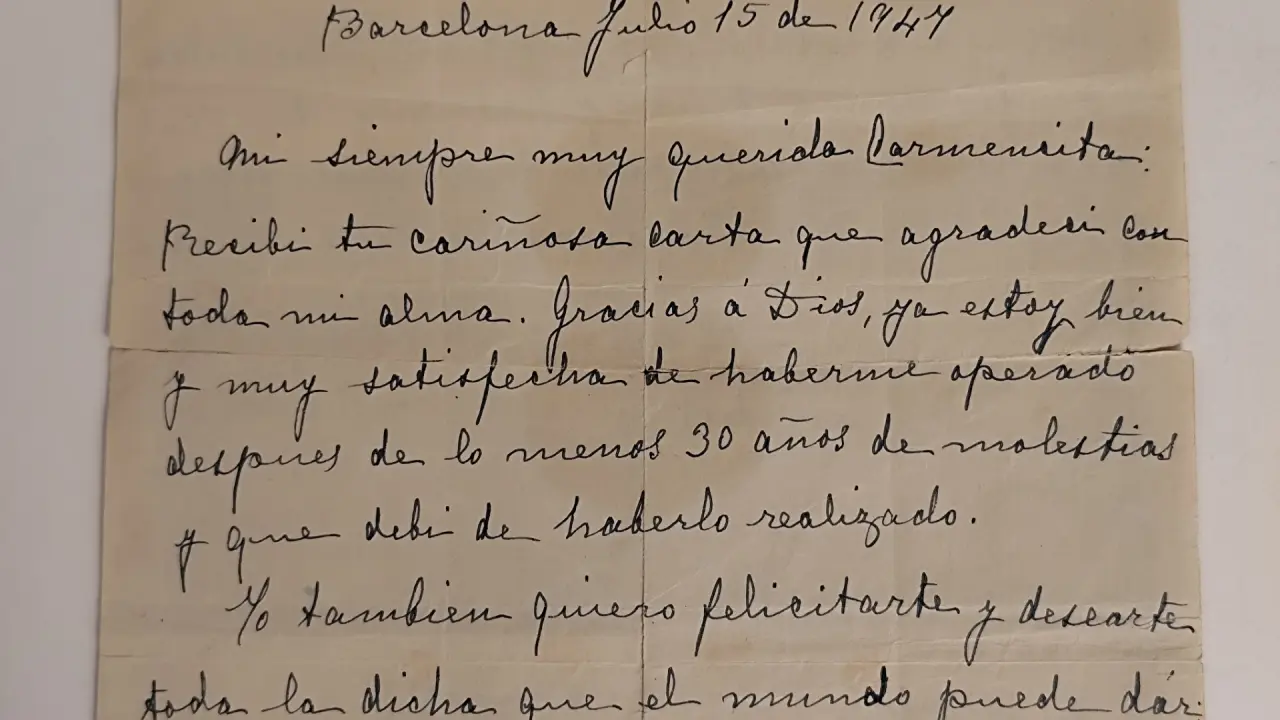 Barcelona Julio 15 de 1947
Mi siempre muy querida Carmencita:
Recibi tu cariñosa carta que agradeci con
toda mi alma. Gracias á Dios, ya estoy bien
y muy satisfecha de haberme operado
despues de lo menos 30 años de molestias
y que debi de haberlo realizado.
Yo tambien quiero felicitarte y desearte
toda la dicha que el mundo puede dár